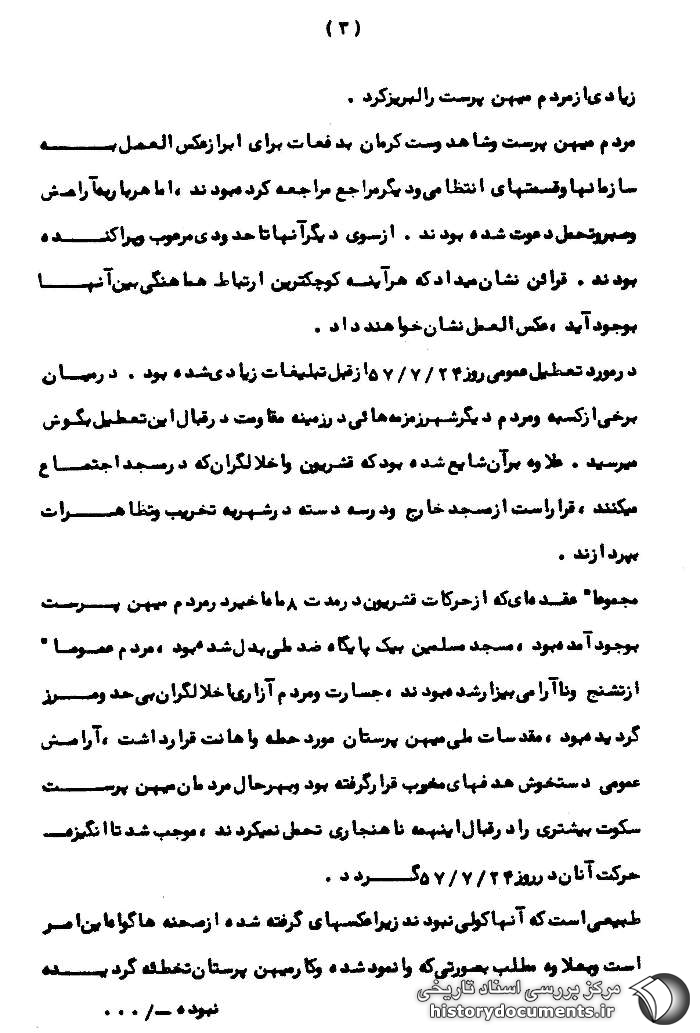 ( ۳ )
زیادی از مردم میهن پرست را لبریز کرد .
مردم میهن پرست و شاهدوست کرمان بدفعات برای ابراز عکس العمل به
سازمانها و قسمتهای انتظامی و دیگر مراجع مراجعه کرده بودند ، اما هربار به آرامش
و صبر و تحمل دعوت شده بودند . از سوی دیگر آنها تا حدودی مرعوب و پراکنده
بودند . قرائن نشان میداد که هرآینه کوچکترین ارتباط هماهنگی بین آنها
بوجود آید ، عکس العمل نشان خواهند داد .
در مورد تعطیل عمومی روز ۵۷/۷/۲۴ از قبل تبلیغات زیادی شده بود . در میان
برخی از کسبه و مردم دیگر شهر زمزمه هائی در زمینه مقاومت در قبال این تعطیل بگوش
میرسید . علاوه بر آن شایع شده بود که قشریون و اخلالگران که در مسجد اجتماع
میکنند ، قرار است از مسجد خارج و در سه دسته در شهر به تخریب و تظاهرات
بپردازند .
مجموعا" عقده ای که از حرکات قشریون در مدت ۸ ماه اخیر در مردم میهن پرست
بوجود آمده بود ، مسجد مسلمین بیک پایگاه ضد ملی بدل شده بود ، مردم عموما"
از تشنج و ناآرامی بیزار شده بودند ، جسارت و مردم آزاری اخلالگران بی حد و مرز
گردیده بود ، مقدسات ملی میهن پرستان مورد حمله و اهانت قرار داشت ، آرامش
عمومی دستخوش هدفهای مخرب قرار گرفته بود و بهرحال مردمان میهن پرست
سکوت بیشتری را در قبال اینهمه ناهنجاری تحمل نمیکردند ، موجب شد تا انگیزه
حرکت آنان در روز ۵۷/۷/۲۴ گردد .
طبیعی است که آنها کولی نبودند زیرا عکسهای گرفته شده از صحنه ها گواه این امر
است و بعلاوه مطلب بصورتی که وانمود شده و کار میهن پرستان تخطئه گردیده
نبوده —/ ۰۰۰
مرکز بررسی اسناد تاریخی
historydocuments.ir